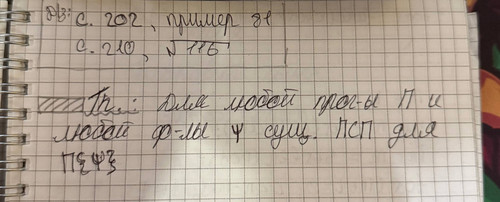 ДЗ: с. 202, пример 81
с. 210, √116
Th.: Для любой прог-ы П и
любой ф-лы ψ сущ. ПСП для
П{ψ}